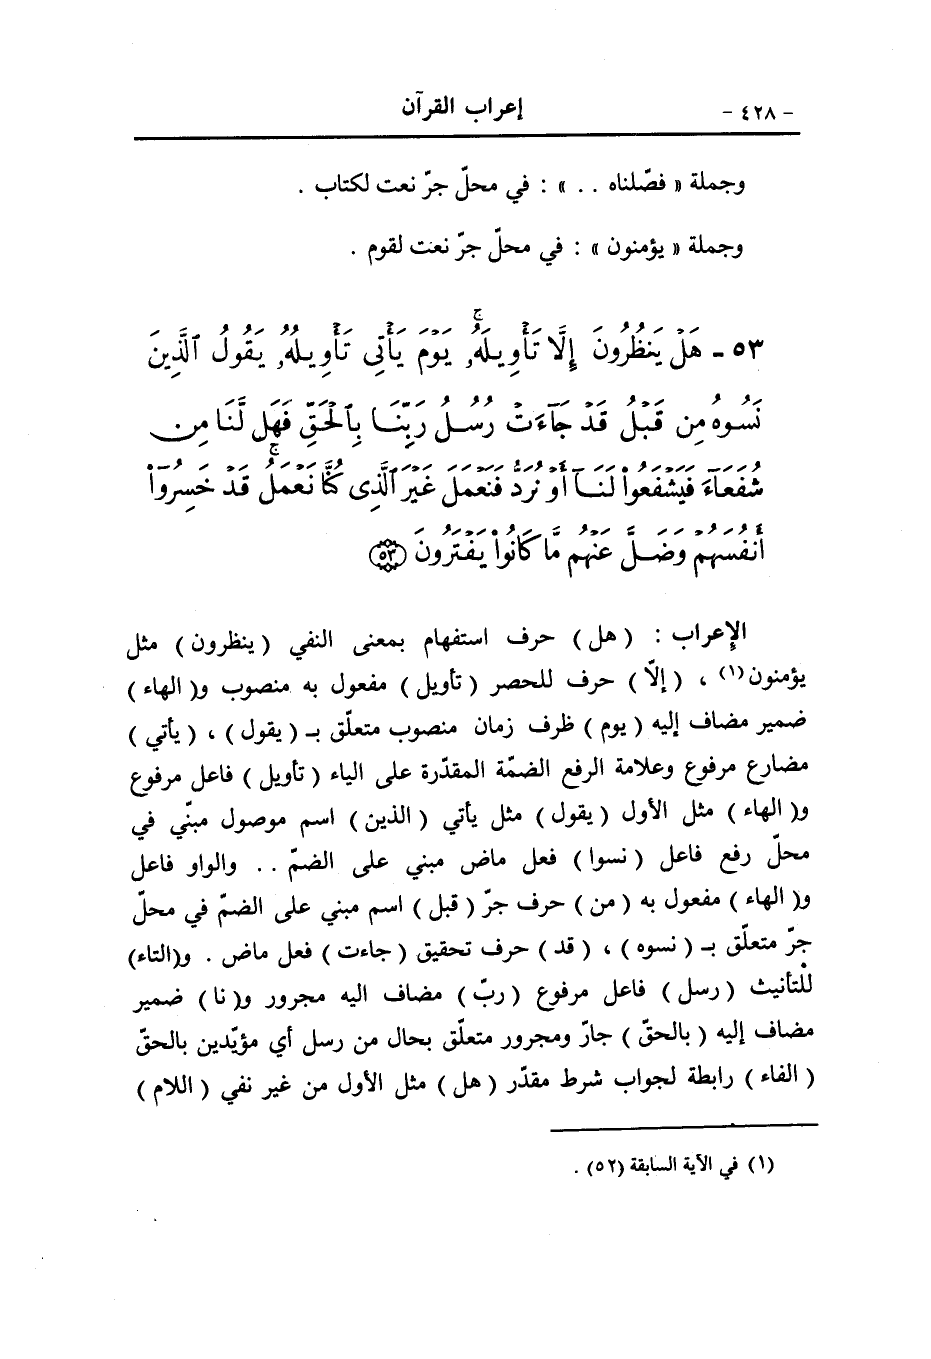 - ٤٢٨ - إعراب القرآن
وجملة « فصّلناه . . » : في محلّ جرّ نعت لكتاب .
وجملة « يؤمنون » : في محلّ جرّ نعت لقوم .
٥٣ - هَلْ يَنظُرُونَ إِلَّا تَأْوِيلَهُۥ ۚ يَوْمَ يَأْتِى تَأْوِيلُهُۥ يَقُولُ ٱلَّذِينَ
نَسُوهُ مِن قَبْلُ قَدْ جَآءَتْ رُسُلُ رَبِّنَا بِٱلْحَقِّ فَهَل لَّنَا مِن
شُفَعَآءَ فَيَشْفَعُوا۟ لَنَآ أَوْ نُرَدُّ فَنَعْمَلَ غَيْرَ ٱلَّذِى كُنَّا نَعْمَلُ ۚ قَدْ خَسِرُوٓا۟
أَنفُسَهُمْ وَضَلَّ عَنْهُم مَّا كَانُوا۟ يَفْتَرُونَ ﴿٥٣﴾
الإعراب : ( هل ) حرف استفهام بمعنى النفي ( ينظرون ) مثل
يؤمنون(١) ، ( إلّا ) حرف للحصر ( تأويل ) مفعول به منصوب و( الهاء )
ضمير مضاف إليه ( يوم ) ظرف زمان منصوب متعلّق بـ ( يقول ) ، ( يأتي )
مضارع مرفوع وعلامة الرفع الضمّة المقدّرة على الياء ( تأويل ) فاعل مرفوع
و( الهاء ) مثل الأول ( يقول ) مثل يأتي ( الذين ) اسم موصول مبنّي في
محلّ رفع فاعل ( نسوا ) فعل ماض مبني على الضمّ . . والواو فاعل
و( الهاء ) مفعول به ( من ) حرف جرّ ( قبل ) اسم مبني على الضمّ في محلّ
جرّ متعلّق بـ ( نسوه ) ، ( قد ) حرف تحقيق ( جاءت ) فعل ماض . و(التاء)
للتأنيث ( رسل ) فاعل مرفوع ( ربّ ) مضاف اليه مجرور و( نا ) ضمير
مضاف إليه ( بالحقّ ) جارّ ومجرور متعلّق بحال من رسل أي مؤيّدين بالحقّ
( الفاء ) رابطة لجواب شرط مقدّر ( هل ) مثل الأول من غير نفي ( اللام )
(١) في الآية السابقة (٥٢) .